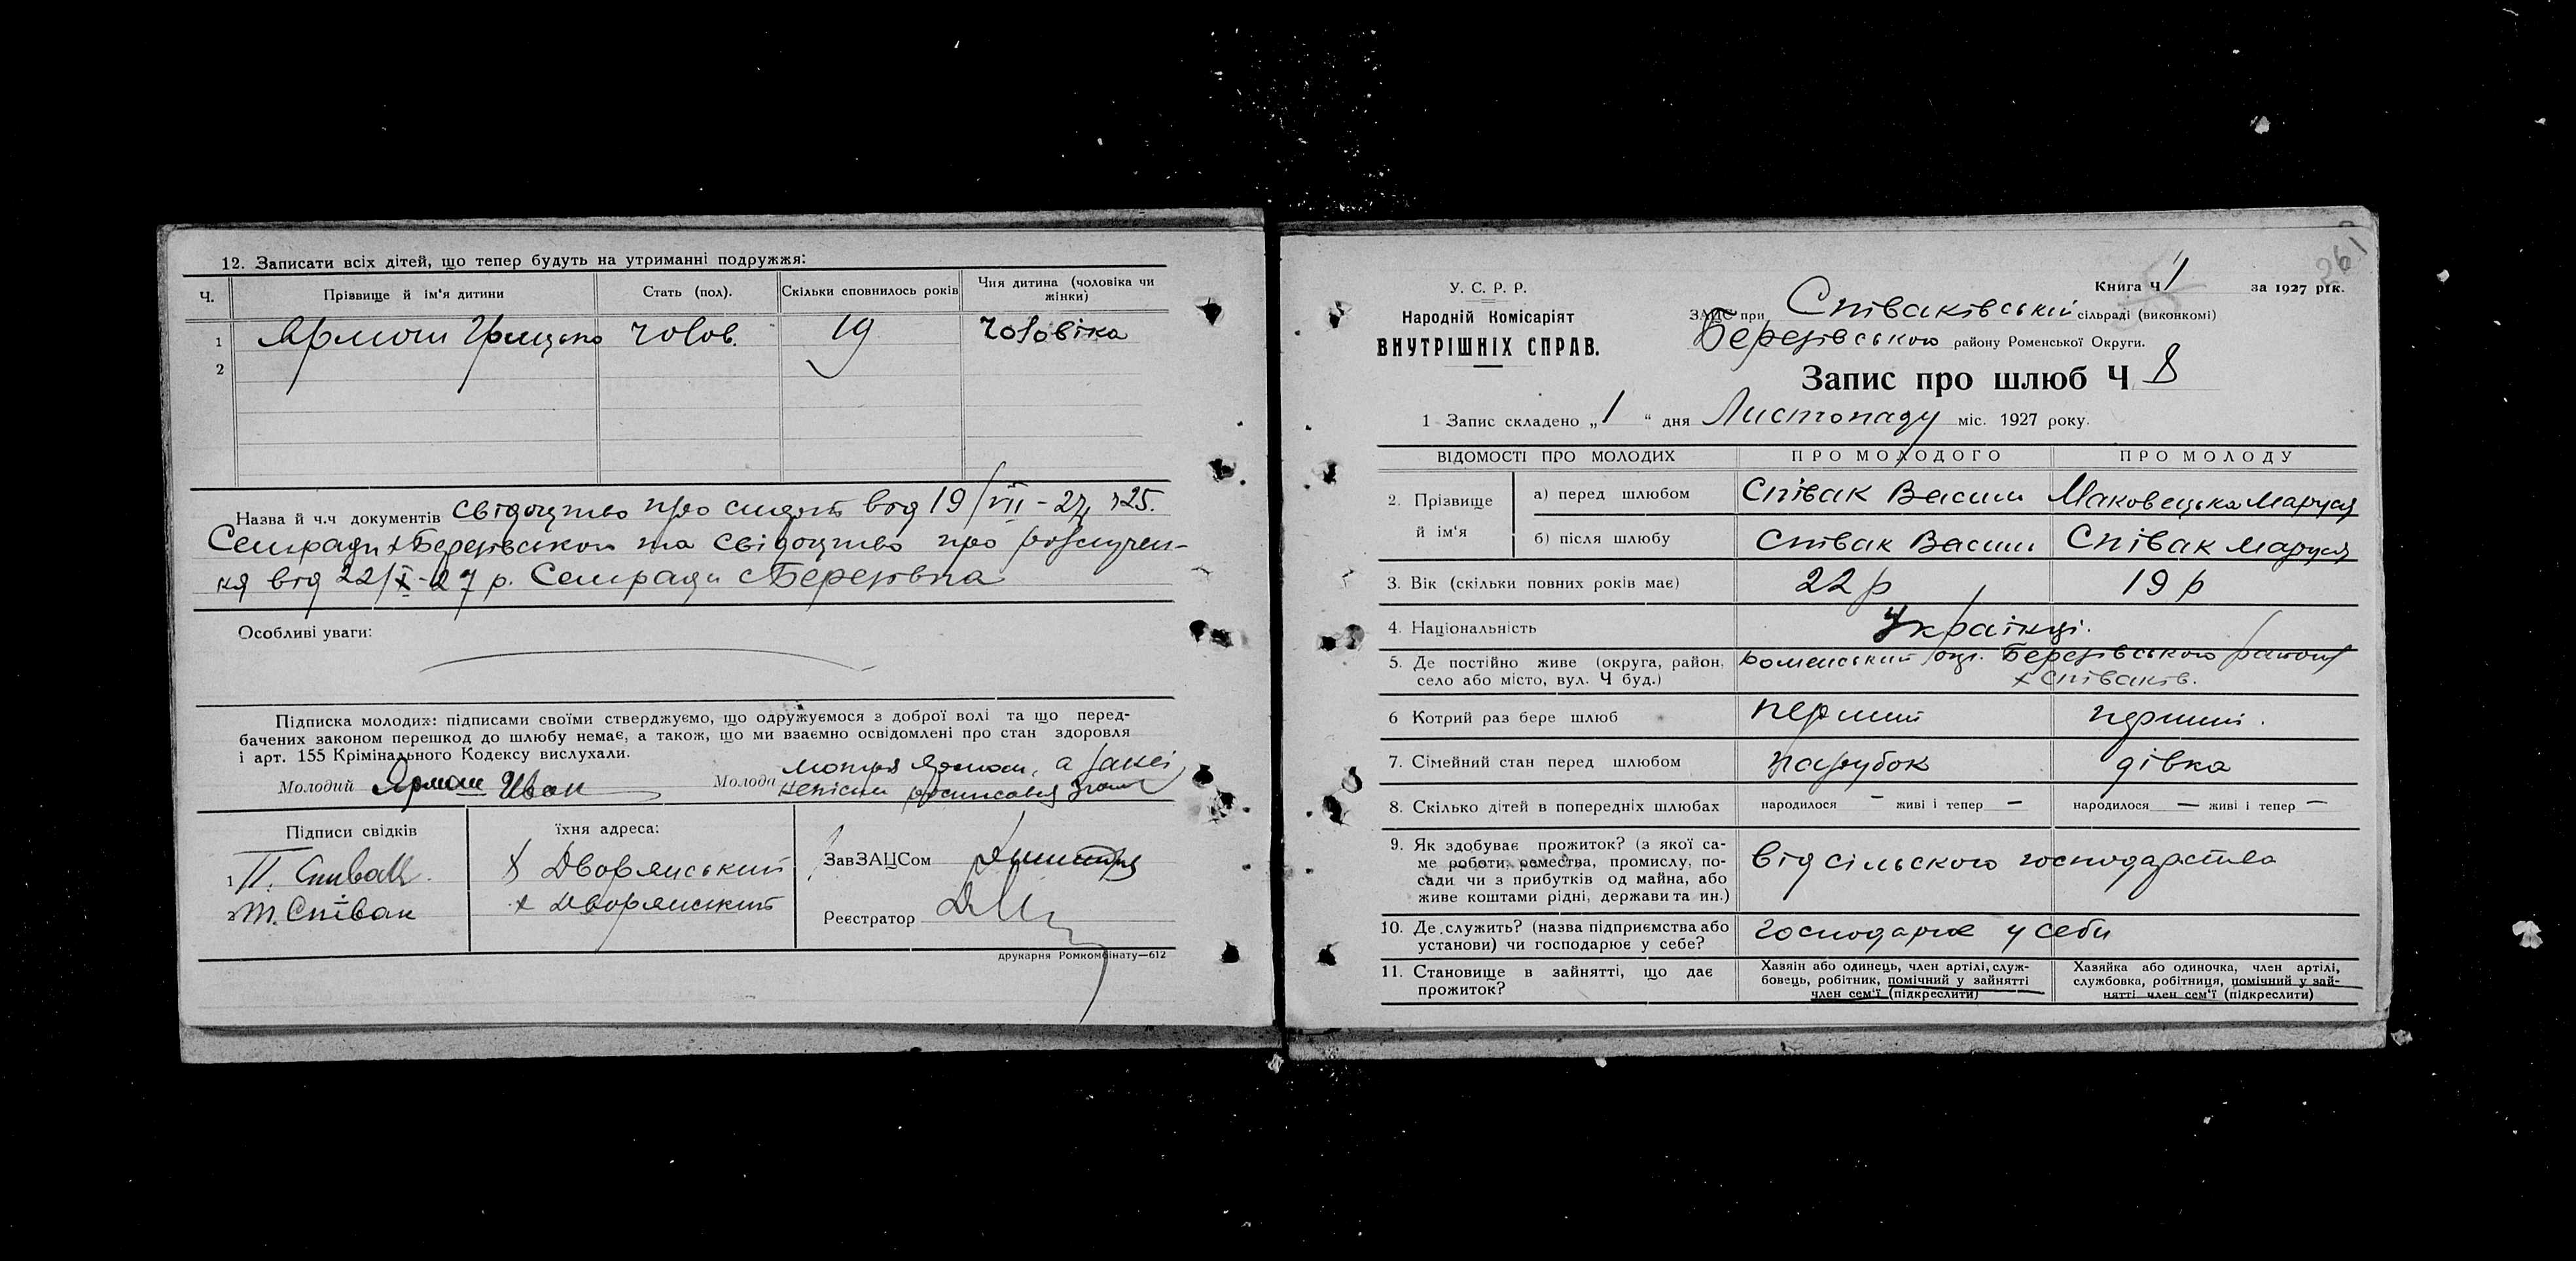 12. Записати всіх дітей, що тепер будуть на утриманні подружжя:
Ч. Прізвище й ім'я дитини Стать (пол). Скільки сповнилось років Чия дитина (чоловіка чи жінки)
1 Ярмош Грицько чолов. 19 чоловіка
2
Назва й ч.ч документів Свідоцтво про смерть від 19/VII-27, 125.
Сельради х Березівської та Свідоцтво про розлучен-
ня від 22/X-27 р. Сельради с Березівка
Особливі уваги:
Підписка молодих: підписами своїми стверджуємо, що одружуємося з доброї волі та що перед-
бачених законом перешкод до шлюбу немає, а також, що ми взаємно освідомлені про стан здоровля
і арт. 155 Крімінального Кодексу вислухали.
Молодий Ярмош Иван Молода Мотря Ярмош, а за неї
неписьм росписався
Підписи свідків їхня адреса:
1 П. Спивак х Дворянський ЗавЗАЦСом
2 Т. Співак х Дворянський
Реєстратор
друкарня Ромкомбінату—612
261
У. С. Р. Р.
Народній Комісаріят
ВНУТРІШНІХ СПРАВ.
Книга Ч 1 за 1927 рік.
ЗАЦС при Співаківській сільраді (виконкомі)
Березівського району Роменської Округи.
Запис про шлюб Ч 8
1 Запис складено „1“ дня Листопаду міс. 1927 року.
ВІДОМОСТІ ПРО МОЛОДИХ ПРО МОЛОДОГО ПРО МОЛОДУ
2. Прізвище й ім'я а) перед шлюбом Співак Васил Маковецька Маруся
б) після шлюбу Співак Васил Співак Маруся
3. Вік (скільки повних років має) 22 р 19 р
4. Національність Українці.
5. Де постійно живе (округа, район, Роменський окр. Березівського району
село або місто, вул. Ч буд.) х Співаків.
6 Котрий раз бере шлюб перший перший.
7. Сімейний стан перед шлюбом парубок дівка
8. Скілько дітей в попередніх шлюбах народилося — живі і тепер — народилося — живі і тепер —
9. Як здобуває прожиток? (з якої са-
ме роботи, ремества, промислу, по-
сади чи з прибутків од майна, або
живе коштами рідні, держави та ин.) від сільського господарства
10. Де служить? (назва підприємства або
установи) чи господарює у себе? господарює у себе
11. Становище в зайнятті, що дає
прожиток?
Хазяїн або одинець, член артілі, служ-
бовець, робітник, помічний у зайнятті
член сем'ї (підкреслити)
Хазяйка або одиночка, член артілі,
службовка, робітниця, помічний у зай-
нятті член сем'ї (підкреслити)